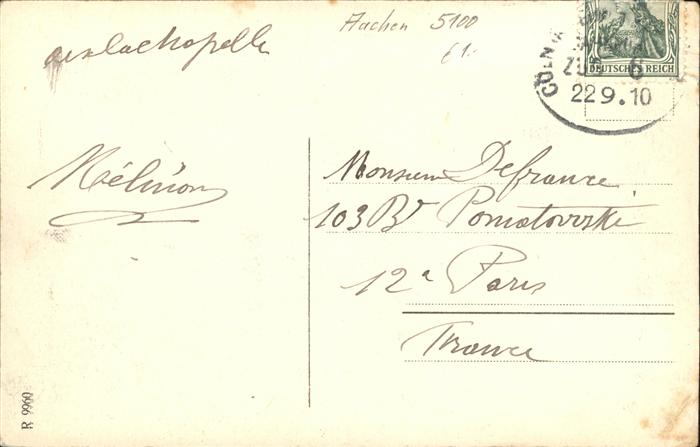 Aachen 5100
61.
aixlachapelle
DEUTSCHES REICH
CÖLN
ZUG 6
22 9.10
Mélinon
Monsieur Defrance
103 Bd Poniatovski
12e Paris
France
R 9960